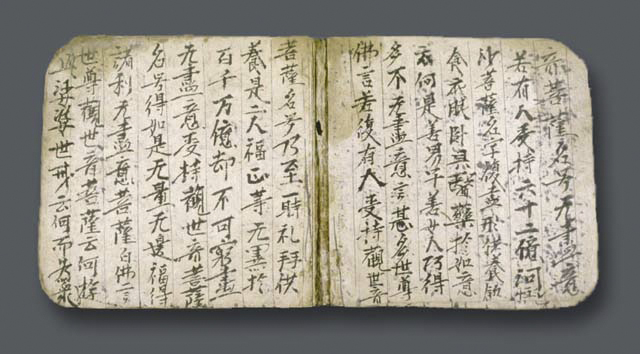 音菩薩名号无盡意
若有人受持六十二億河恒
沙菩薩名字復盡形供養飲
食衣服卧具醫藥於如意
云何是善男子善女人功得
多不无盡意言甚多世尊
佛言若復有人受持觀世音
菩薩名号乃至一時礼拜供
養是二人福正等无異於
百千万億却不可窮盡
无盡意受持觀世音菩薩
名号得如是无量无邊福得
諸利无盡意菩薩白佛言
世尊觀世音菩薩云何遊
娑婆世界云何而為衆